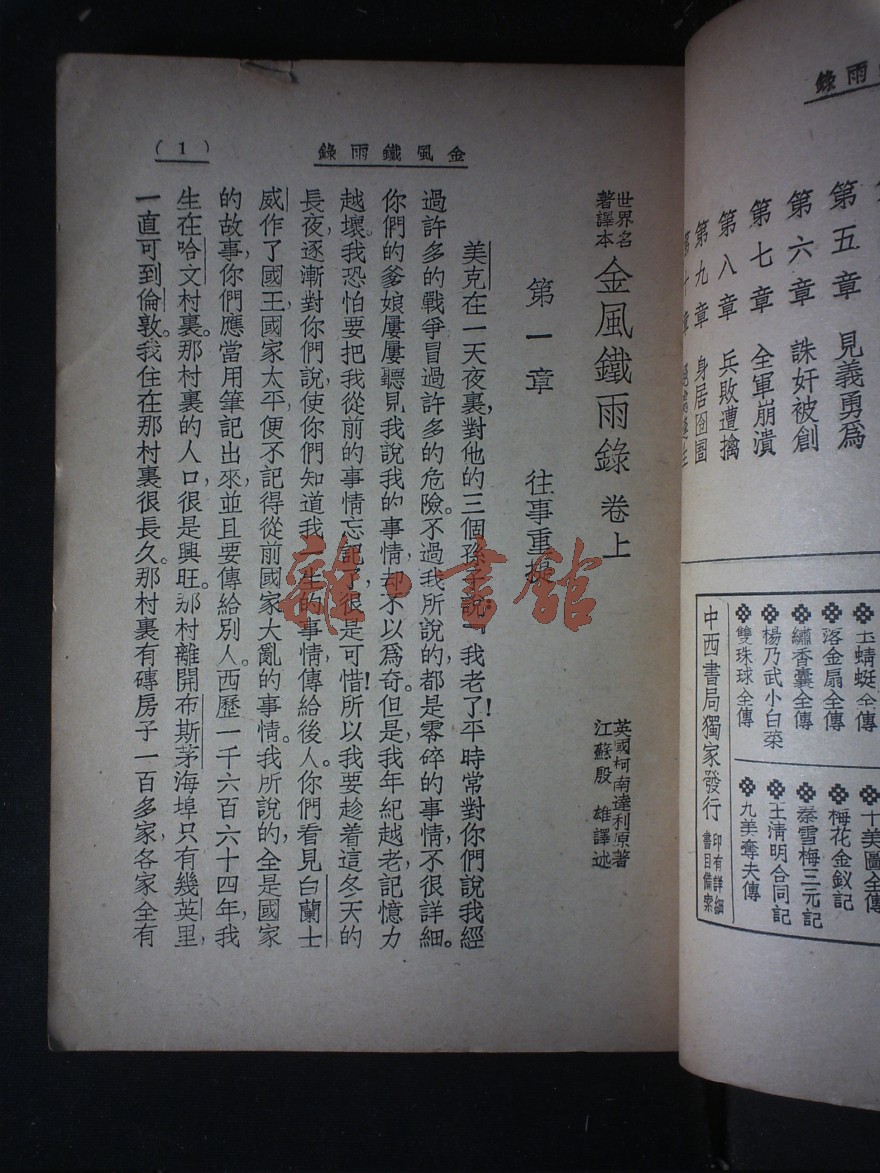 雨錄
第五章 見義勇爲
第六章 誅奸被創
第七章 全軍崩潰
第八章 兵敗遭擒
第九章 身居囹圄
十美圖全傳
梅花金釵記
秦雪梅三元記
王清明合同記
九美奪夫傳
玉蜻蜓全傳
落金扇全傳
繡香囊全傳
楊乃武小白菜
雙珠球全傳
中西書局獨家發行 印有詳細書目備案
金風鐵雨錄
(1)
世界名著譯本 金風鐵雨錄 卷上
英國柯南達利原著
江蘇殷 雄譯述
第一章 往事重提
美克在一天夜裏,對他的三個孫子說:『我老了!平時常對你們說我經
過許多的戰爭冒過許多的危險。不過我所說的,都是零碎的事情不很詳細。
你們的爹娘屢屢聽見我說我的事情,却不以爲奇。但是,我年紀越老,記憶力
越壞。我恐怕要把我從前的事情忘記了,很是可惜!所以我要趁着這冬天的
長夜,逐漸對你們說,使你們知道我一生的事情,傳給後人。你們看見白蘭士
威作了國王,國家太平,便不記得從前國家大亂的事情。我所說的,全是國家
的故事,你們應當用筆記出來,並且要傳給別人。西歷一千六百六十四年,我
生在哈文村裏。那村裏的人口,很是興旺。那村離開布斯茅海埠只有幾英里,
一直可到倫敦。我住在那村裏很長久。那村裏有磚房子一百多家,各家全有
雜·書館